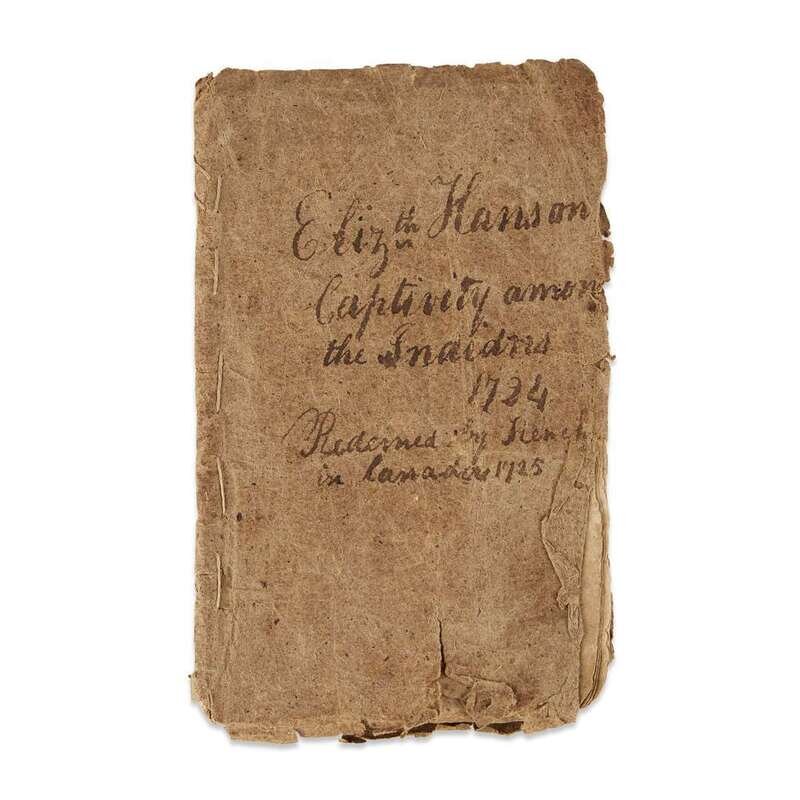 Elizth Hanson
Captivity amon
the Inaidns
1724
Redemed by French
in Canada 1725